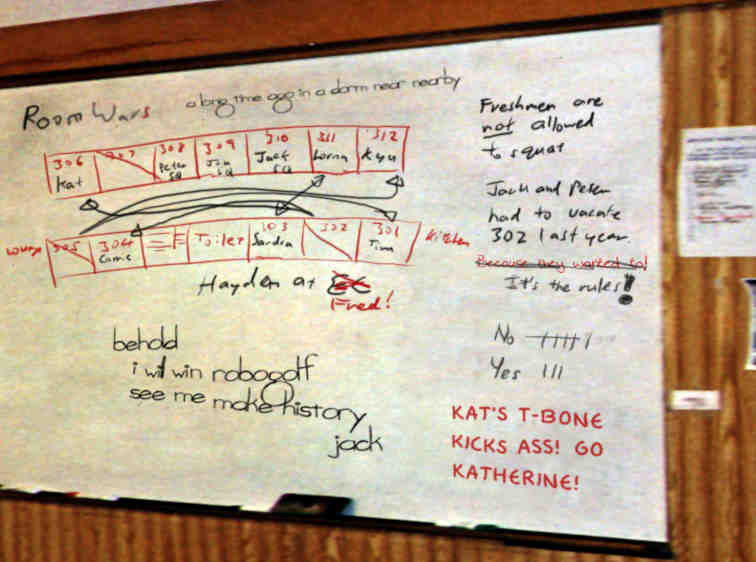 Room Wars a long time ago in a dorm near nearby
306 307 308 309 310 311 312
Kat Peter SQ Jon SQ Jack SQ Lorna Kyu
lounge 305 304 Toilet 303 302 301 Kitchen
Sandra Tim
Hayden at
Fred!
behold
i will win robogolf
see me make history
jack
Freshmen are
not allowed
to squat
Jack and Peter
had to vacate
302 last year.
Because they wanted to!
It's the rules!
No
Yes III
KAT'S T-BONE
KICKS ASS! GO
KATHERINE!